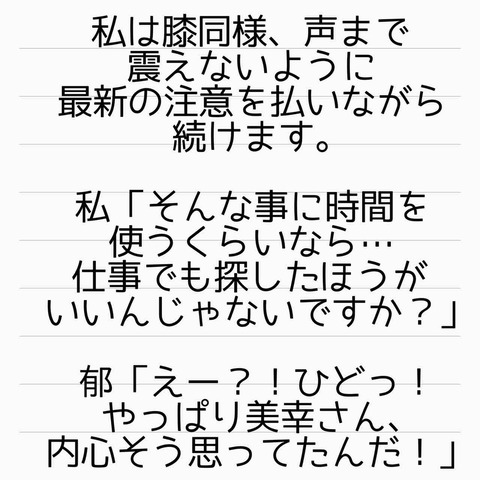 私は膝同様、声まで
震えないように
最新の注意を払いながら
続けます。
私「そんな事に時間を
使うくらいなら…
仕事でも探したほうが
いいんじゃないですか？」
郁「えー？！ひどっ！
やっぱり美幸さん、
内心そう思ってたんだ！」